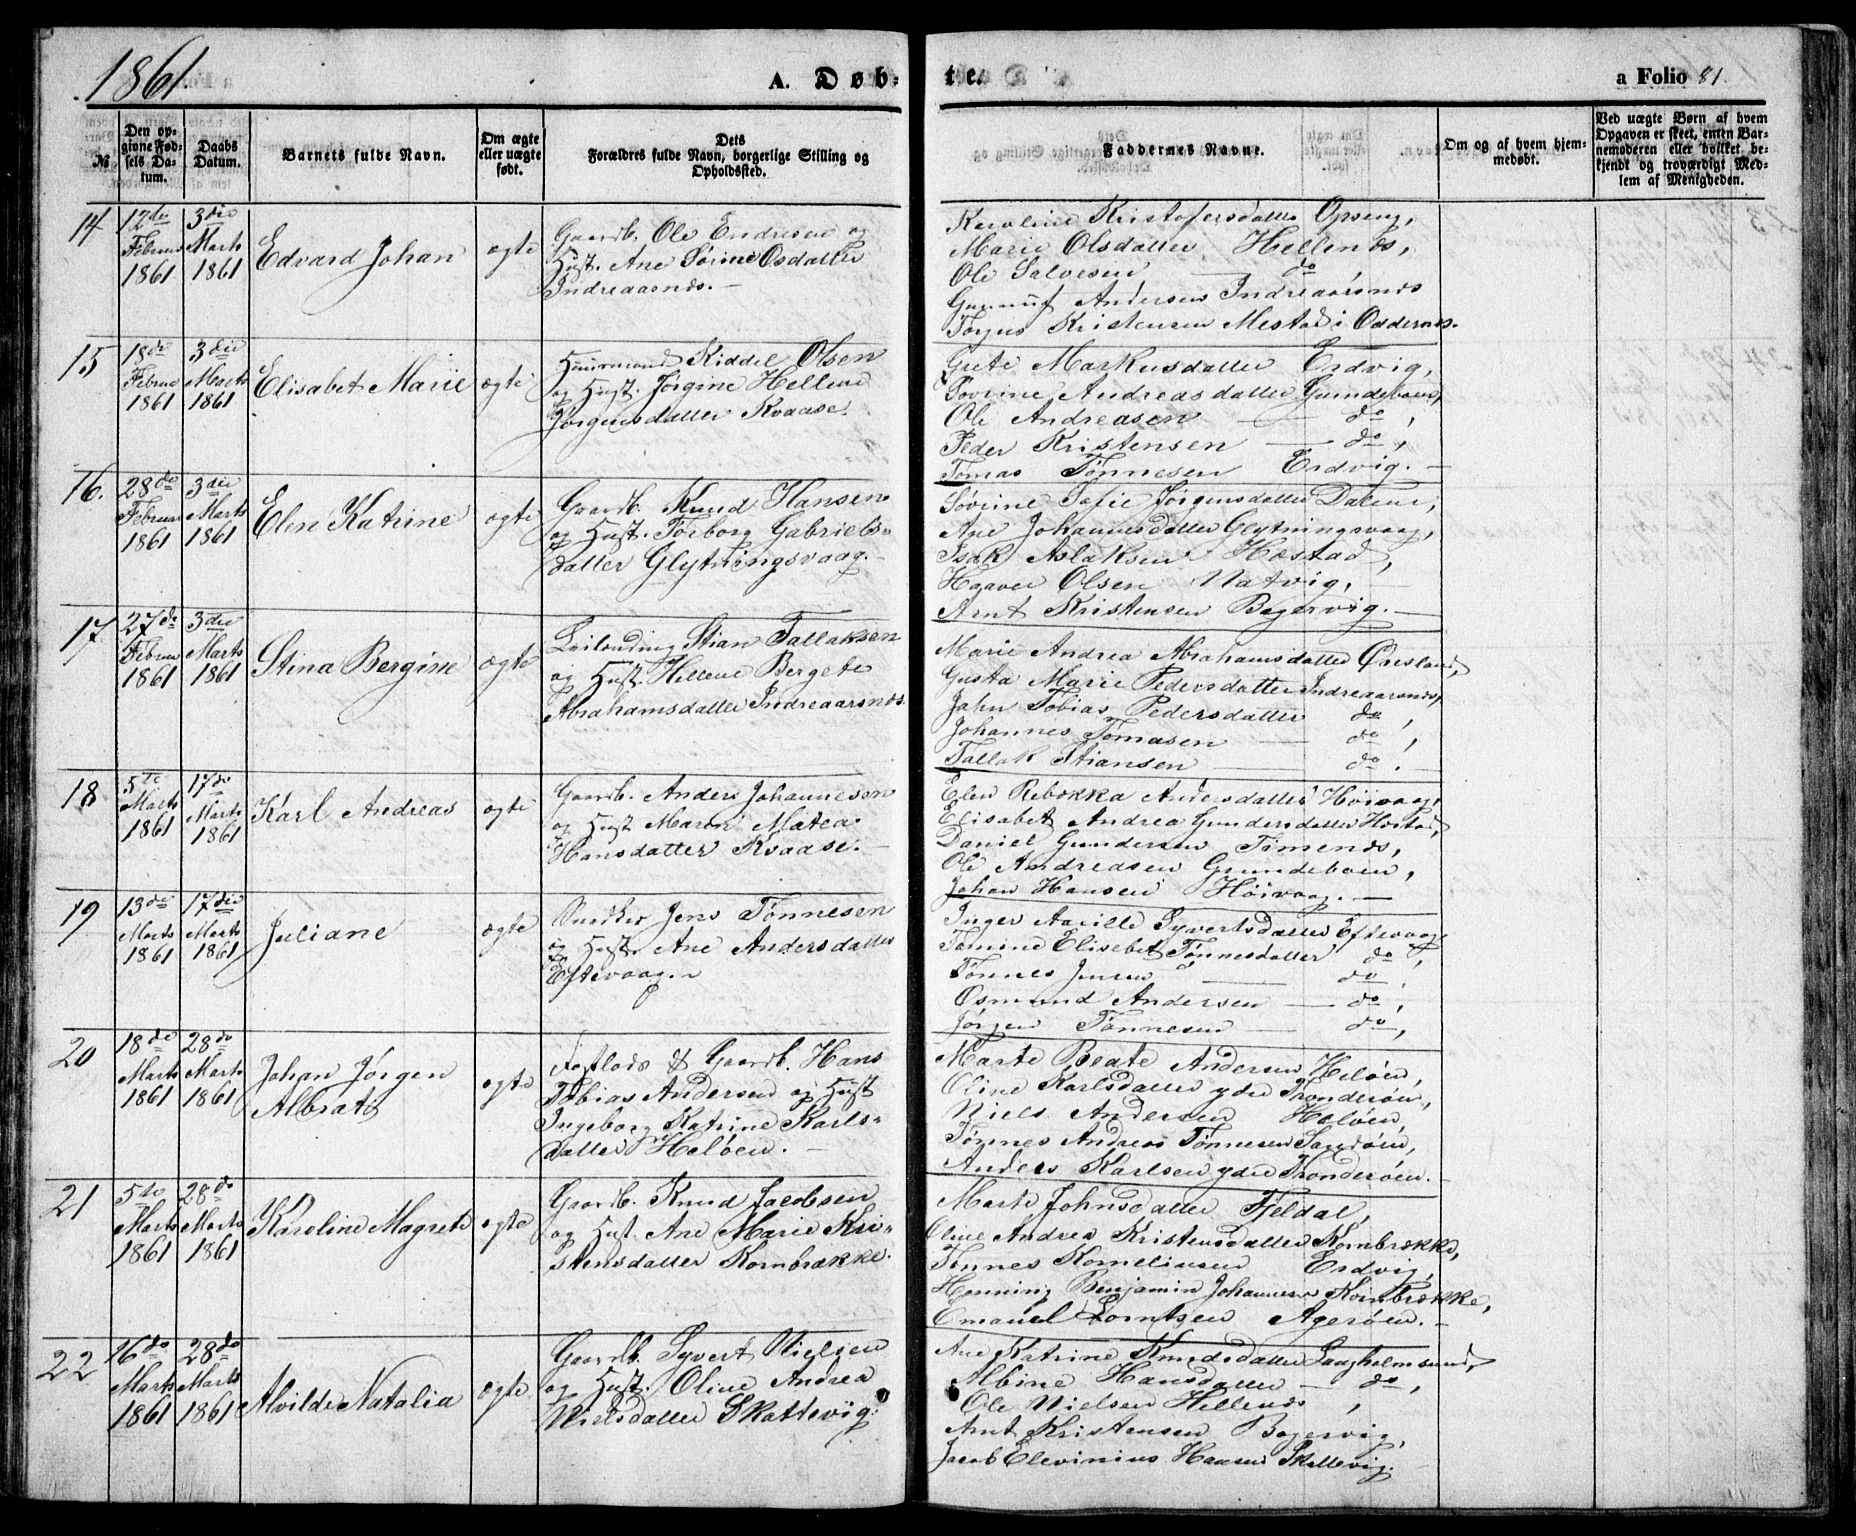 1861.
A. Døb-
te.
a Folio 81.
№
Den op-
givne Fød-
sels Da-
tum.
Daabs
Datum.
Barnets fulde Navn.
Om ægte
eller uægte
født.
Dets
Forældres fulde Navn, borgerlige Stilling og
Opholdssted.
Faddernes Navne.
Om og af hvem hjem-
medøbt.
Ved uægte Børn af hvem
Opgaven er skeet, enten Bar-
nemoderen eller hvilket be-
kjendt og troværdigt Med-
lem af Menigheden.
14
12te
Februar
1861
3die
Marts
1861
Edvard Johan
ægte
Gaardb. Ole Endresen og
Hust. Ane Sørine Osdatter
Indreaasnes.
Karoline Kristofersdatter Opseng,
Marie Olsdatter Hellenes,
Ole Salvesen do
Gunnuf Andersen Indreaarsnes
Torjus Kristensen Mestad i Oddernes.
15
18de
Februar
1861
3die
Marts
1861
Elisabet Marie
ægte
Huusmand Kiddel Olsen
og Hust. Jørgine Hellene
Jørgensdatter Kvaase.
Grete Markusdatter Erdvig,
Sovrine Andreasdatter Grundeboen,
Ole Andreasen do,
Peder Kristensen do,
Tomas Tønnesen Erdvig.
16.
28de
Februar
1861
3die
Marts
1861
Elen Katrine
ægte
Gaardb. Knud Hansen
og Hust. Torborg Gabriels-
datter Glytningsvaag.
Sovrine Sofie Jørgensdatter Dalene,
Ane Johannesdatter Glytningsvaag,
Isak Aslaksen Hæstad,
Haaver Olsen Natvig,
Arnt Kristensen Bøgervig.
17
27de
Februar
1861
3die
Marts
1861
Stina Bergine
ægte
Leilending Stian Tallaksen
og Hust. Hellene Bergete
Abrahamsdatter Indreaarsnes.
Marie Andrea Abrahamsdatter Øresland,
Gusta Marie Pedersdatter Indreaarsnes,
Jahn Tobias Pedersdatter do,
Johannes Tomasen do,
Tallak Stiansen do.
18
5te
Marts
1861
17de
Marts
1861
Karl Andreas
ægte
Gaardb. Anders Johannesen
og Hust Maren Matea
Hansdatter Kvaase.
Elen Rebekka Andersdatter Høivaag,
Elisabet Andrea Gundersdatter Hæstad,
Daniel Gundersen Tømenes,
Ole Andreasen Grundeboen,
Johan Hansen Høivaag.
19
13de
Marts
1861
17die
Marts
1861
Juliane
ægte
Snedker Jens Tønnesen
og Hust. Ane Andersdatter
Eftevaag.
Inger Aaville Syvertsdatter Eftevaag
Tomine Elisebet Tønnesdatter do,
Tønnes Jensen do,
Osmund Andersen do,
Jørgen Tønnesen do,
20
18de
Marts
1861
28de
Marts
1861
Johan Jørgen
Albrati
ægte
Fastlods & Gaardb. Hans
Tobias Andersen og Hust
Ingeborg Katrine Karls-
datter Heløen.
Marte Beate Andersen Heløen,
Oline Karlsdatter ydre Tronderøen,
Niels Andersen Heløen,
Tønnes Andreas Tønnesen Sandøen,
Anders Karlsen ydre Tronderøen.
21
5te
Marts
1861
28de
Marts
1861
Karoline Magrete
ægte
Gaardb. Knud Jacobsen
og Hust. Ane Marie Kri-
stensdatter Kornbrække.
Marte Johnsdatter Fjeldal,
Oline Andrea Kristensdatter Kornbrække,
Tønnes Korneliusen Erdvig,
Henning Benjamin Johannesen Kornbrække,
Emanuel Lorntsen Agerøen.
22
16de
Marts
1861
28de
Marts
1861
Alvilde Natalia
ægte
Gaardb. Syvert Nielsen
og Hust. Oline Andrea
Nielsdatter Skattevig.
Ane Katrine Knudsdatter Gaasholmsund,
Albine Hansdatter do,
Ole Nielsen Hellenes,
Arnt Kristensen Bøgervig,
Jacob Elevinius Hansen Skattevig.